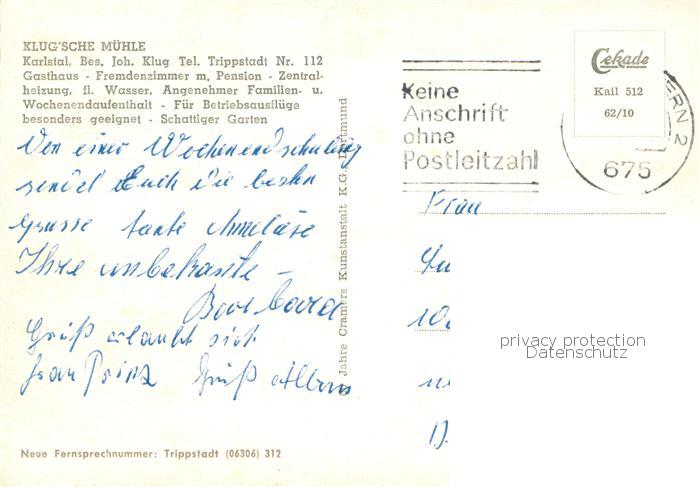 KLUG'SCHE MÜHLE
Karlstal, Bes. Joh. Klug Tel. Trippstadt Nr. 112
Gasthaus - Fremdenzimmer m. Pension - Zentral-
heizung, fl. Wasser. Angenehmer Familien- u.
Wochenendaufenthalt - Für Betriebsausflüge
besonders geeignet - Schattiger Garten
Von einer Wochenendschulung
sendet Euch die besten
Grüsse Tante Anneliese
Ihre unbekannte –
Barbara
Gruß erlaubt sich
Frau Prinz Gruß
Neue Fernsprechnummer: Trippstadt (06306) 312
Jahre Cramers Kunstanstalt K.G., Dortmund
Keine
Anschrift
ohne
Postleitzahl
Cekade
Kail 512
62/10
ERN 2
675
Frau
privacy protection
Datenschutz